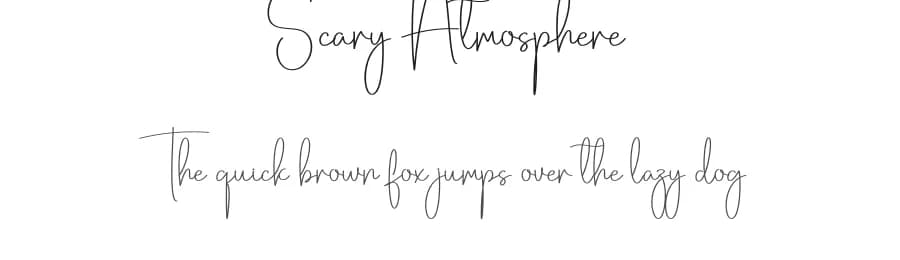 Scary Atmosphere
The quick brown fox jumps over the lazy dog